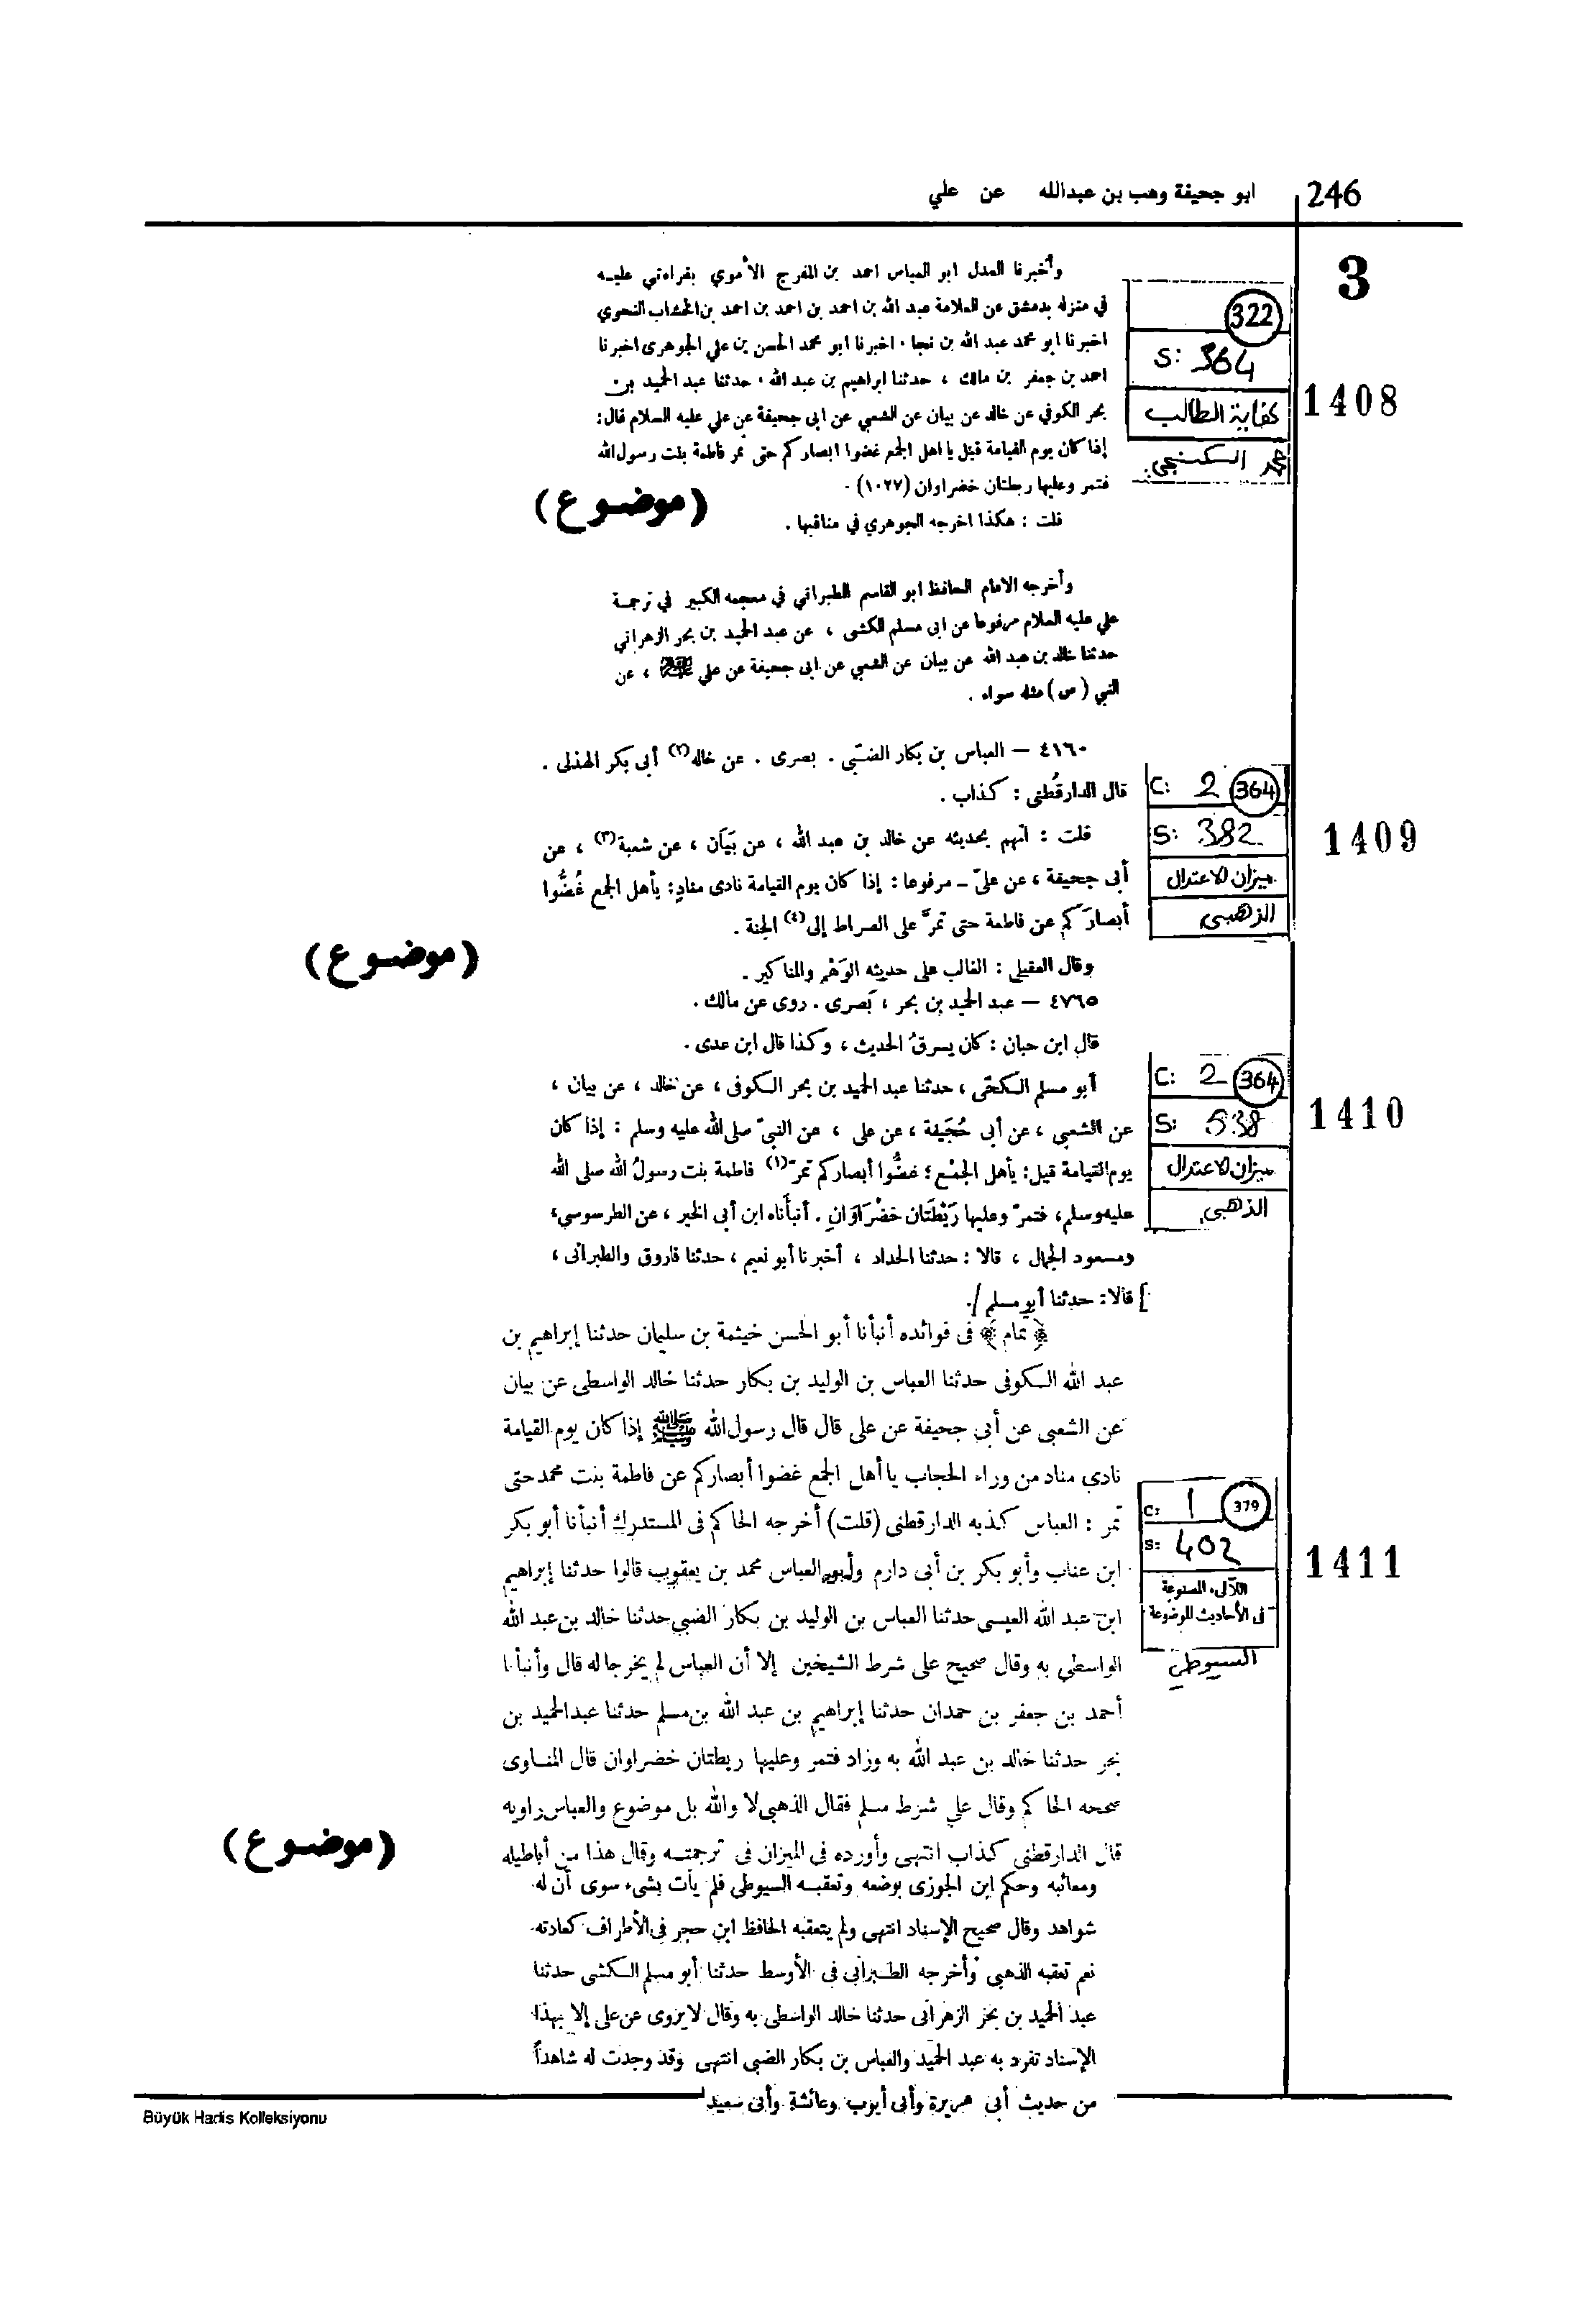 246
ابو جحيفة وهب بن عبدالله عن علي
3
وأخبرنا العدل ابو العباس احمد بن المفرج الأموي بقراءتي عليه
في منزله بدمشق عن العلامة عبد الله بن احمد بن احمد بن احمد بن الخشاب النحوي
اخبرنا ابو محمد عبد الله بن نجا . اخبرنا ابو محمد الحسن بن علي الجوهرى اخبرنا
احمد بن جعفر بن مالك ، حدثنا ابراهيم بن عبد الله . حدثنا عبد الحميد بن
بحر الكوفي عن خالد عن بيان عن الشعبي عن ابى جحيفة عن علي عليه السلام قال :
إذا كان يوم القيامة قيل يا اهل الجمع غضوا ابصاركم حتى تمر فاطمة بنت رسول الله
فتمر وعليها ريطتان خضراوان (١٠٢٧) .
قلت : هكذا اخرجه الجوهري في مناقبها .
(موضوع)
322
S: 364
كفاية الطالب
محمد السكنجي
1408
وأخرجه الامام الحافظ ابو القاسم الطبراني في معجمه الكبير في ترجمة
علي عليه السلام مرفوعا عن ابى مسلم الكشى ، عن عبد الحميد بن بحر الزهراني
حدثنا خالد بن عبد الله عن بيان عن الشعبي عن ابى جحيفة عن علي ، عن
النبي (ص) مثله سواء .
٤١٦٠ – العباس بن بكار الضبّى . بصرى . عن خاله(٢) أبى بكر الهذلى .
قال الدارقُطنى : كذاب .
قلت : اتّهم بحديثه عن خالد بن عبد الله ، عن بَيَان ، عن شعبة(٣) ، عن
أبى جحيفة ، عن علىّ – مرفوعا : إذا كان يوم القيامة نادى منادٍ : يأهل الجمع غُضُّوا
أبصارَكم عن فاطمة حتى تمرَّ على الصراط إلى(٤) الجنة .
وقال العقيلى : الغالب على حديثه الوَهْم والمناكير .
(موضوع)
C: 2 364
S: 382
ميزان الاعتدال
الذهبى
1409
٤٧٦٥ – عبد الحميد بن بحر ، بَصرى . روى عن مالك .
قال ابن حبان : كان يسرقُ الحديث ، وكذا قال ابن عدى .
أبو مسلم الكجّى ، حدثنا عبد الحميد بن بحر الكوفى ، عن خالد ، عن بيان ،
عن الشعبي ، عن أبى حُجَيفة ، عن على ، عن النبىّ صلى الله عليه وسلم : إذا كان
يوم القيامة قيل : يأهل الجَمْع ؛ غضُّوا أبصاركم تمرّ(١) فاطمة بنت رسولُ الله صلى الله
عليه وسلم ، فتمرّ وعليها رَيْطَتَان خضْرَاوَانِ . أنبأناه ابن أبى الخير ، عن الطرسوسي ،
ومسعود الجمال ، قالا : حدثنا الحداد ، أخبرنا أبو نعيم ، حدثنا فاروق والطبرانى ،
[ قالا : حدثنا أبو مسلم ] .
C: 2 364
S: 538
ميزان الاعتدال
الذهبى
1410
﴿ تمام ﴾ فى فوائده أنبأنا أبو الحسن خيثمة بن سليمان حدثنا إبراهيم بن
عبد الله الكوفى حدثنا العباس بن الوليد بن بكار حدثنا خالد الواسطى عن بيان
عن الشعبى عن أبى جحيفة عن على قال قال رسول الله ﷺ إذا كان يوم القيامة
نادى مناد من وراء الحجاب يا أهل الجمع غضوا أبصاركم عن فاطمة بنت محمد حتى
تمر : العباس كذبه الدارقطنى (قلت) أخرجه الحاكم فى المستدرك أنبأنا أبو بكر
ابن عتاب وأبو بكر بن أبى دارم وأبو العباس محمد بن يعقوب قالوا حدثنا إبراهيم
ابن عبد الله العبسى حدثنا العباس بن الوليد بن بكار الضبى حدثنا خالد بن عبد الله
الواسطى به وقال صحيح على شرط الشيخين إلا أن العباس لم يخرجا له قال وأنبأنا
أحمد بن جعفر بن حمدان حدثنا إبراهيم بن عبد الله بن مسلم حدثنا عبد الحميد بن
بحر حدثنا خالد بن عبد الله به وزاد فتمر وعليها ريطتان خضراوان قال المناوى
صححه الحاكم وقال على شرط مسلم فقال الذهبى لا والله بل موضوع والعباس راويه
قال الدارقطنى كذاب انتهى وأورده فى الميزان فى ترجمته وقال هذا من أباطيله
ومصائبه وحكم ابن الجوزى بوضعه وتعقبه السيوطى فلم يأت بشىء سوى أن له
شواهد وقال صحيح الإسناد انتهى ولم يتعقبه الحافظ ابن حجر فى الأطراف كعادته
نعم تعقبه الذهبى وأخرجه الطبرانى فى الأوسط حدثنا أبو مسلم الكشى حدثنا
عبد الحميد بن بحر الزهرانى حدثنا خالد الواسطى به وقال لا يروى عن على إلا بهذا
الإسناد تفرد به عبد الحميد والعباس بن بكار الضبى انتهى وقد وجدت له شاهداً
من حديث أبى هريرة وأبى أيوب وعائشة وأبى سعيد
(موضوع)
C: 1 379
S: 402
اللآلىء المصنوعة
فى الأحاديث الموضوعة
السيوطى
1411
Büyük Hadis Kolleksiyonu